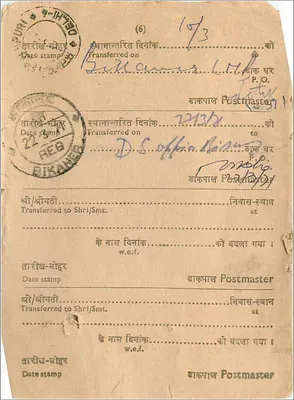 (6)
DELHI-6
तारीख-मोहर स्थानान्तरित दिनांक 10/3 को
Date stamp Transferred on
Bikaner डाक घर
P.O.
डाकपाल Postmaster
तारीख-मोहर स्थानान्तरित दिनांक 22/3/71 को
Date stamp Transferred on
22.3.71
REG
BIKANER
D.S. office डाक घर
P.O.
22/3/71
डाकपाल Postmaster
श्री/श्रीमती निवास-स्थान
Transferred to Shri/Smt. at
के नाम दिनांक को बदला गया ।
w.e.f.
तारीख-मोहर
Date stamp डाकपाल Postmaster
श्री/श्रीमती निवास-स्थान
Transferred to Shri/Smt. at
के नाम दिनांक को बदला गया ।
w.e.f.
तारीख-मोहर
Date stamp डाकपाल Postmaster